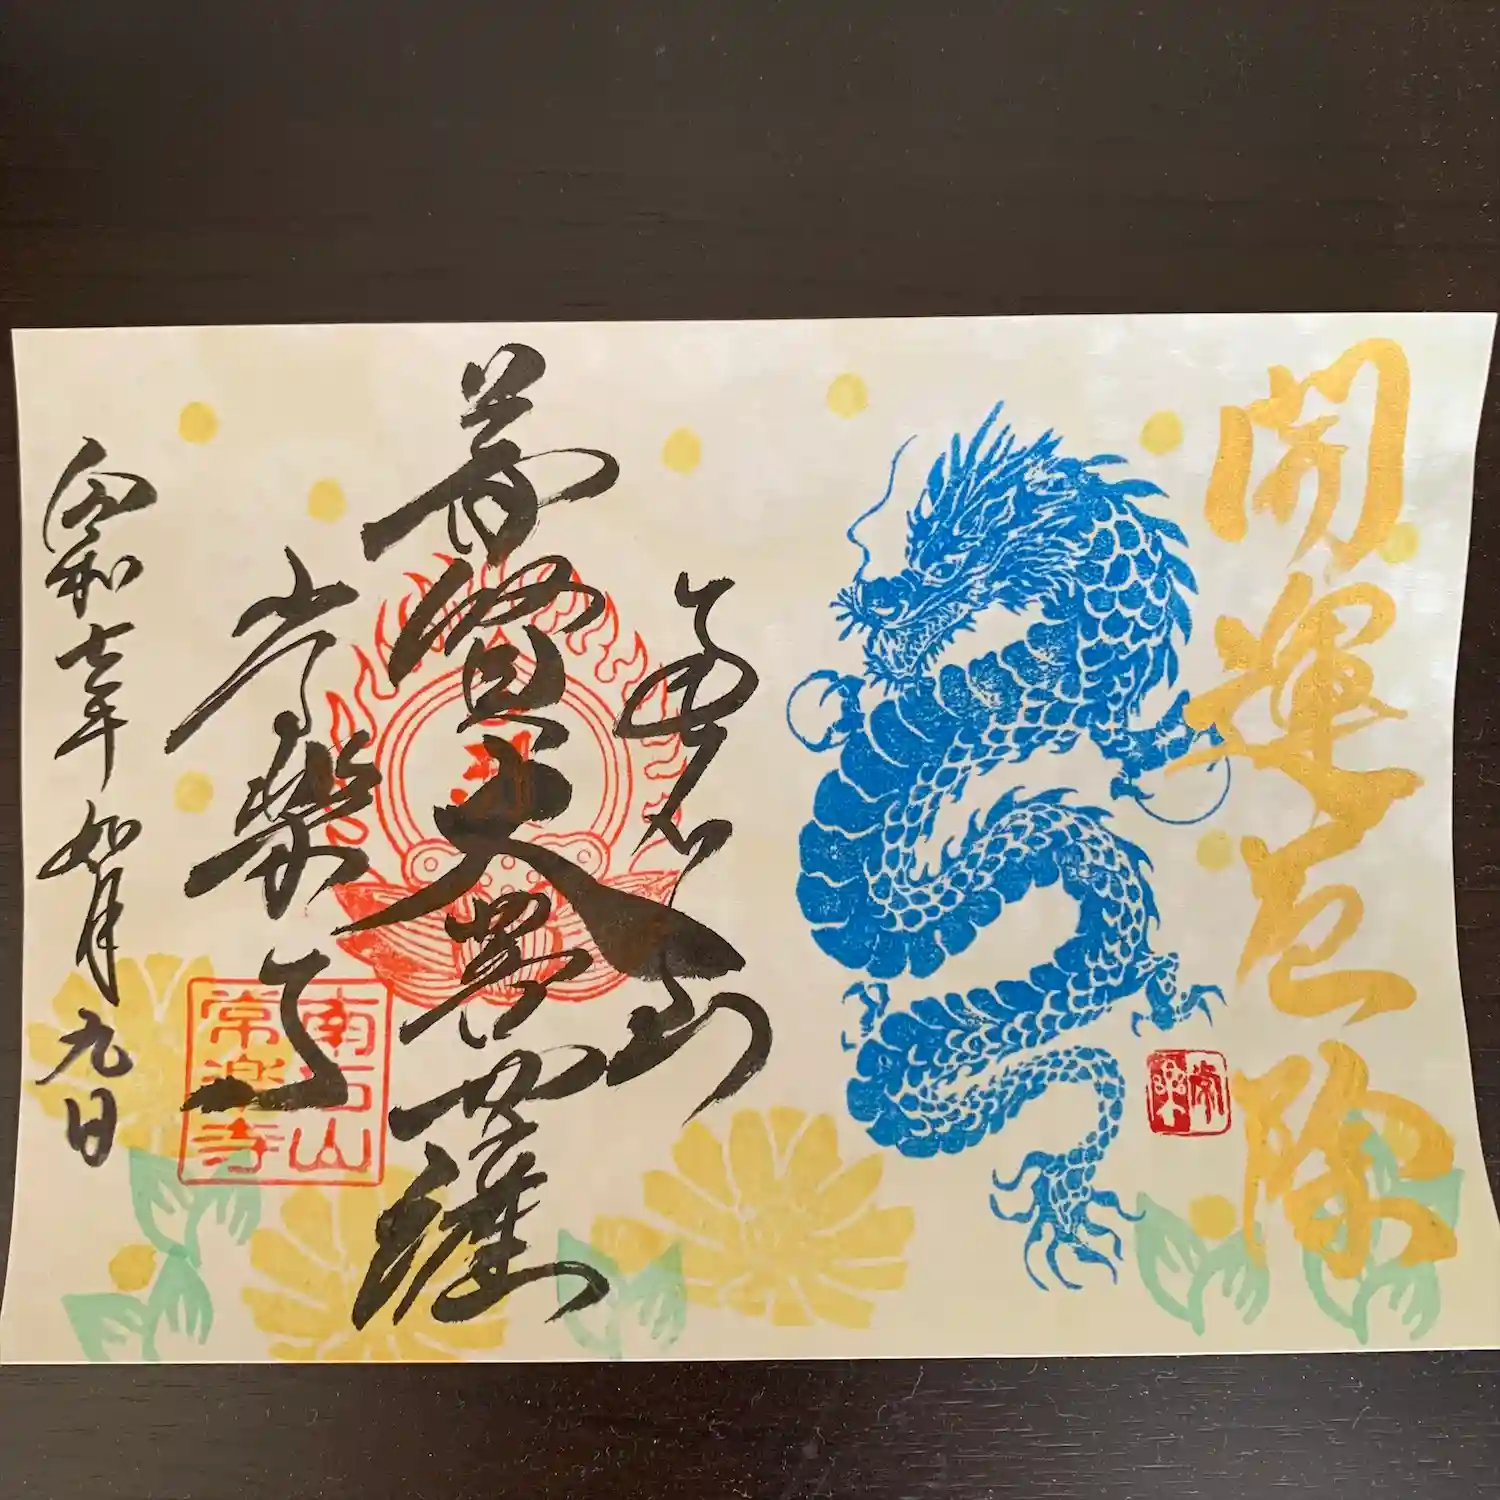 開運厄除
常楽
南石山
普賢大菩薩
常楽寺
南石山
常楽寺
令和七年如月九日